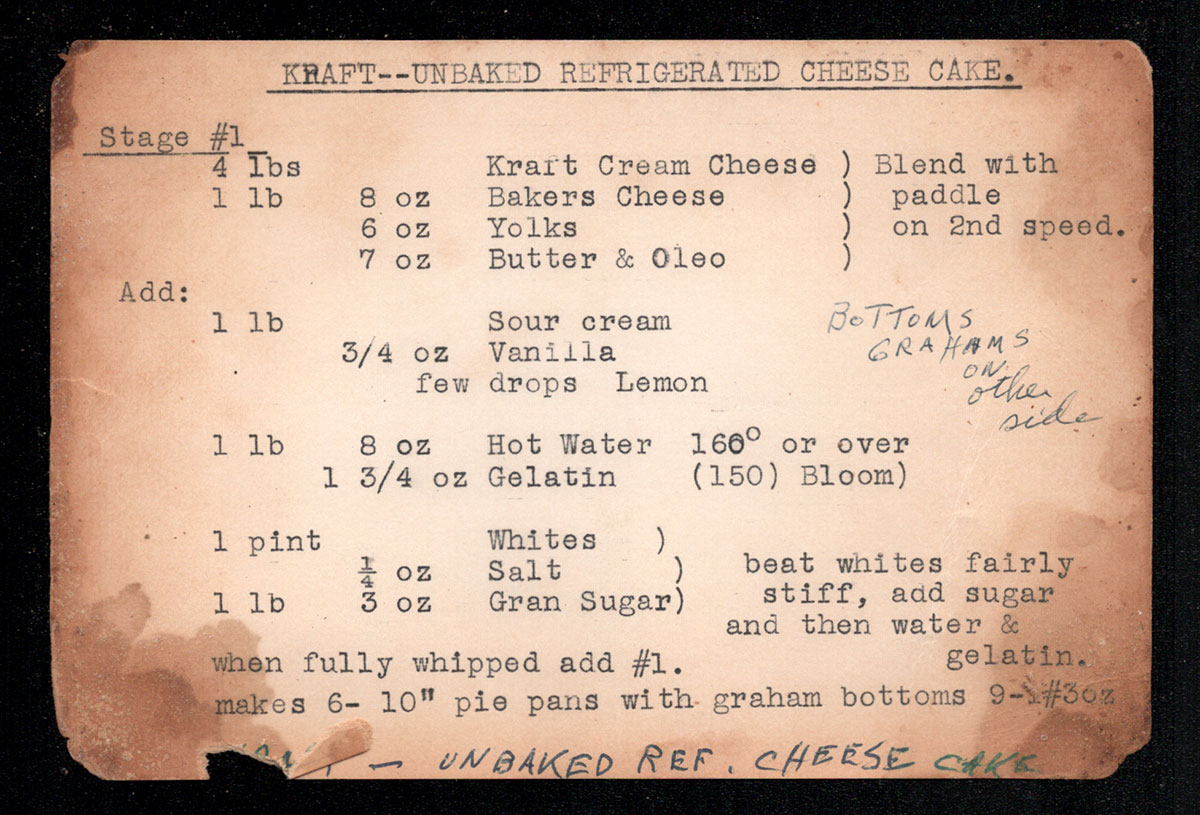 KRAFT--UNBAKED REFRIGERATED CHEESE CAKE.
Stage #1
4 lbs Kraft Cream Cheese ) Blend with
1 lb 8 oz Bakers Cheese ) paddle
6 oz Yolks ) on 2nd speed.
7 oz Butter & Oleo )
Add:
1 lb Sour cream
3/4 oz Vanilla
few drops Lemon
BOTTOMS
GRAHAMS
ON
other
side
1 lb 8 oz Hot Water 160° or over
1 3/4 oz Gelatin (150) Bloom)
1 pint Whites )
¼ oz Salt )
1 lb 3 oz Gran Sugar)
beat whites fairly
stiff, add sugar
and then water &
gelatin.
when fully whipped add #1.
makes 6- 10" pie pans with graham bottoms 9-1#3oz
— UNBAKED REF. CHEESE CAKE